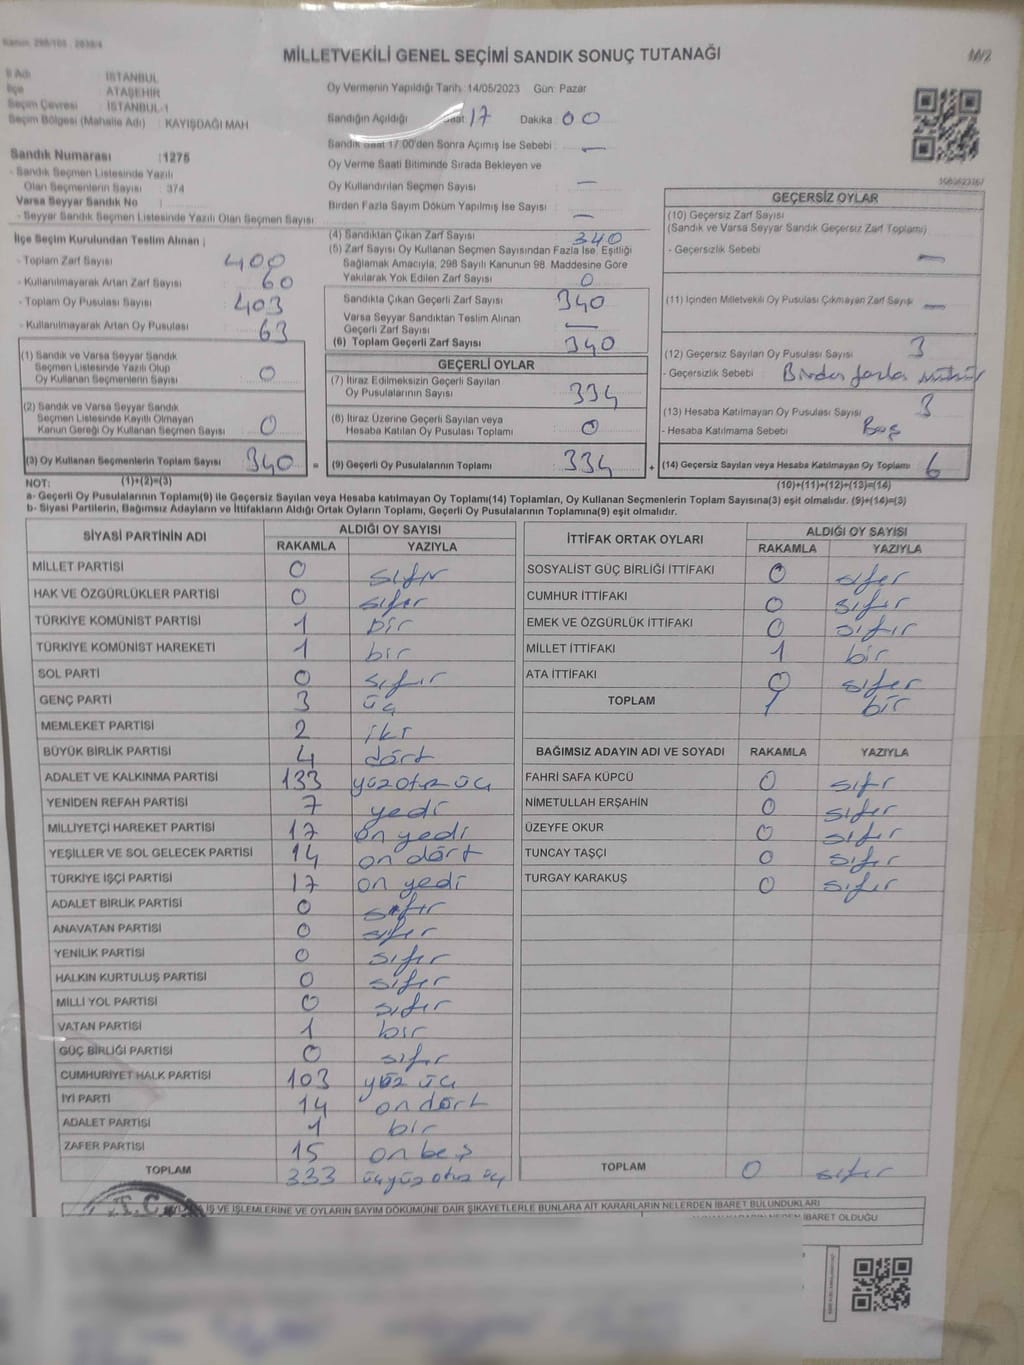 MİLLETVEKİLİ GENEL SEÇİMİ SANDIK SONUÇ TUTANAĞI
İl Adı : İSTANBUL
İlçe : ATAŞEHİR
Seçim Çevresi : İSTANBUL-1
Seçim Bölgesi (Mahalle Adı) : KAYIŞDAĞI MAH
Sandık Numarası : 1275
- Sandık Seçmen Listesinde Yazılı
Olan Seçmenlerin Sayısı : 374
Varsa Seyyar Sandık No :
- Seyyar Sandık Seçmen Listesinde Yazılı Olan Seçmen Sayısı :
Oy Vermenin Yapıldığı Tarih: 14/05/2023 Gün: Pazar
Sandığın Açıldığı Saat 17 Dakika : 00
Sandık Saat 17.00'den Sonra Açımış İse Sebebi : —
Oy Verme Saati Bitiminde Sırada Bekleyen ve
Oy Kullandırılan Seçmen Sayısı : —
Birden Fazla Sayım Döküm Yapılmış İse Sayısı : —
İlçe Seçim Kurulundan Teslim Alınan ;
- Toplam Zarf Sayısı : 400
- Kullanılmayarak Artan Zarf Sayısı : 60
- Toplam Oy Pusulası Sayısı : 403
- Kullanılmayarak Artan Oy Pusulası : 63
(1) Sandık ve Varsa Seyyar Sandık
Seçmen Listesinde Yazılı Olup
Oy Kullanan Seçmenlerin Sayısı : 0
(2) Sandık ve Varsa Seyyar Sandık
Seçmen Listesinde Kayıtlı Olmayan
Kanun Gereği Oy Kullanan Seçmen Sayısı : 0
(3) Oy Kullanan Seçmenlerin Toplam Sayısı : 340
(1)+(2)=(3)
(4) Sandıktan Çıkan Zarf Sayısı : 340
(5) Zarf Sayısı Oy Kullanan Seçmen Sayısından Fazla İse, Eşitliği
Sağlamak Amacıyla, 298 Sayılı Kanunun 98. Maddesine Göre
Yakılarak Yok Edilen Zarf Sayısı : 0
Sandıkta Çıkan Geçerli Zarf Sayısı : 340
Varsa Seyyar Sandıktan Teslim Alınan
Geçerli Zarf Sayısı : —
(6) Toplam Geçerli Zarf Sayısı : 340
GEÇERLİ OYLAR
(7) İtiraz Edilmeksizin Geçerli Sayılan
Oy Pusulalarının Sayısı : 334
(8) İtiraz Üzerine Geçerli Sayılan veya
Hesaba Katılan Oy Pusulası Toplamı : 0
= (9) Geçerli Oy Pusulalarının Toplamı : 334
GEÇERSİZ OYLAR
(10) Geçersiz Zarf Sayısı
(Sandık ve Varsa Seyyar Sandık Geçersiz Zarf Toplamı)
- Geçersizlik Sebebi : —
(11) İçinden Milletvekili Oy Pusulası Çıkmayan Zarf Sayısı : —
(12) Geçersiz Sayılan Oy Pusulası Sayısı : 3
- Geçersizlik Sebebi : Birden fazla mühür
(13) Hesaba Katılmayan Oy Pusulası Sayısı : 3
- Hesaba Katılmama Sebebi : Boş
+ (14) Geçersiz Sayılan veya Hesaba Katılmayan Oy Toplamı : 6
(10)+(11)+(12)+(13)=(14)
NOT:
a- Geçerli Oy Pusulalarının Toplamı(9) ile Geçersiz Sayılan veya Hesaba katılmayan Oy Toplamı(14) Toplamları, Oy Kullanan Seçmenlerin Toplam Sayısına(3) eşit olmalıdır. (9)+(14)=(3)
b- Siyasi Partilerin, Bağımsız Adayların ve İttifakların Aldığı Ortak Oyların Toplamı, Geçerli Oy Pusulalarının Toplamına(9) eşit olmalıdır.
SİYASİ PARTİNİN ADI ALDIĞI OY SAYISI
RAKAMLA YAZIYLA
MİLLET PARTİSİ 0 sıfır
HAK VE ÖZGÜRLÜKLER PARTİSİ 0 sıfır
TÜRKİYE KOMÜNİST PARTİSİ 1 bir
TÜRKİYE KOMÜNİST HAREKETİ 1 bir
SOL PARTİ 0 sıfır
GENÇ PARTİ 3 üç
MEMLEKET PARTİSİ 2 iki
BÜYÜK BİRLİK PARTİSİ 4 dört
ADALET VE KALKINMA PARTİSİ 133 yüz otuz üç
YENİDEN REFAH PARTİSİ 7 yedi
MİLLİYETÇİ HAREKET PARTİSİ 17 on yedi
YEŞİLLER VE SOL GELECEK PARTİSİ 14 on dört
TÜRKİYE İŞÇİ PARTİSİ 17 on yedi
ADALET BİRLİK PARTİSİ 0 sıfır
ANAVATAN PARTİSİ 0 sıfır
YENİLİK PARTİSİ 0 sıfır
HALKIN KURTULUŞ PARTİSİ 0 sıfır
MİLLİ YOL PARTİSİ 0 sıfır
VATAN PARTİSİ 1 bir
GÜÇ BİRLİĞİ PARTİSİ 0 sıfır
CUMHURİYET HALK PARTİSİ 103 yüz üç
İYİ PARTİ 14 on dört
ADALET PARTİSİ 1 bir
ZAFER PARTİSİ 15 on beş
TOPLAM 333 üçyüz otuz üç
İTTİFAK ORTAK OYLARI ALDIĞI OY SAYISI
RAKAMLA YAZIYLA
SOSYALİST GÜÇ BİRLİĞİ İTTİFAKI 0 sıfır
CUMHUR İTTİFAKI 0 sıfır
EMEK VE ÖZGÜRLÜK İTTİFAKI 0 sıfır
MİLLET İTTİFAKI 1 bir
ATA İTTİFAKI 0 sıfır
TOPLAM 1 bir
BAĞIMSIZ ADAYIN ADI VE SOYADI RAKAMLA YAZIYLA
FAHRİ SAFA KÜPCÜ 0 sıfır
NİMETULLAH ERŞAHİN 0 sıfır
ÜZEYFE OKUR 0 sıfır
TUNCAY TAŞÇI 0 sıfır
TURGAY KARAKUŞ 0 sıfır
TOPLAM 0 sıfır
T.C.
İŞ VE İŞLEMLERİNE VE OYLARIN SAYIM DÖKÜMÜNE DAİR ŞİKAYETLERLE BUNLARA AİT KARARLARIN NELERDEN İBARET BULUNDUKLARI
İBARET OLDUĞU